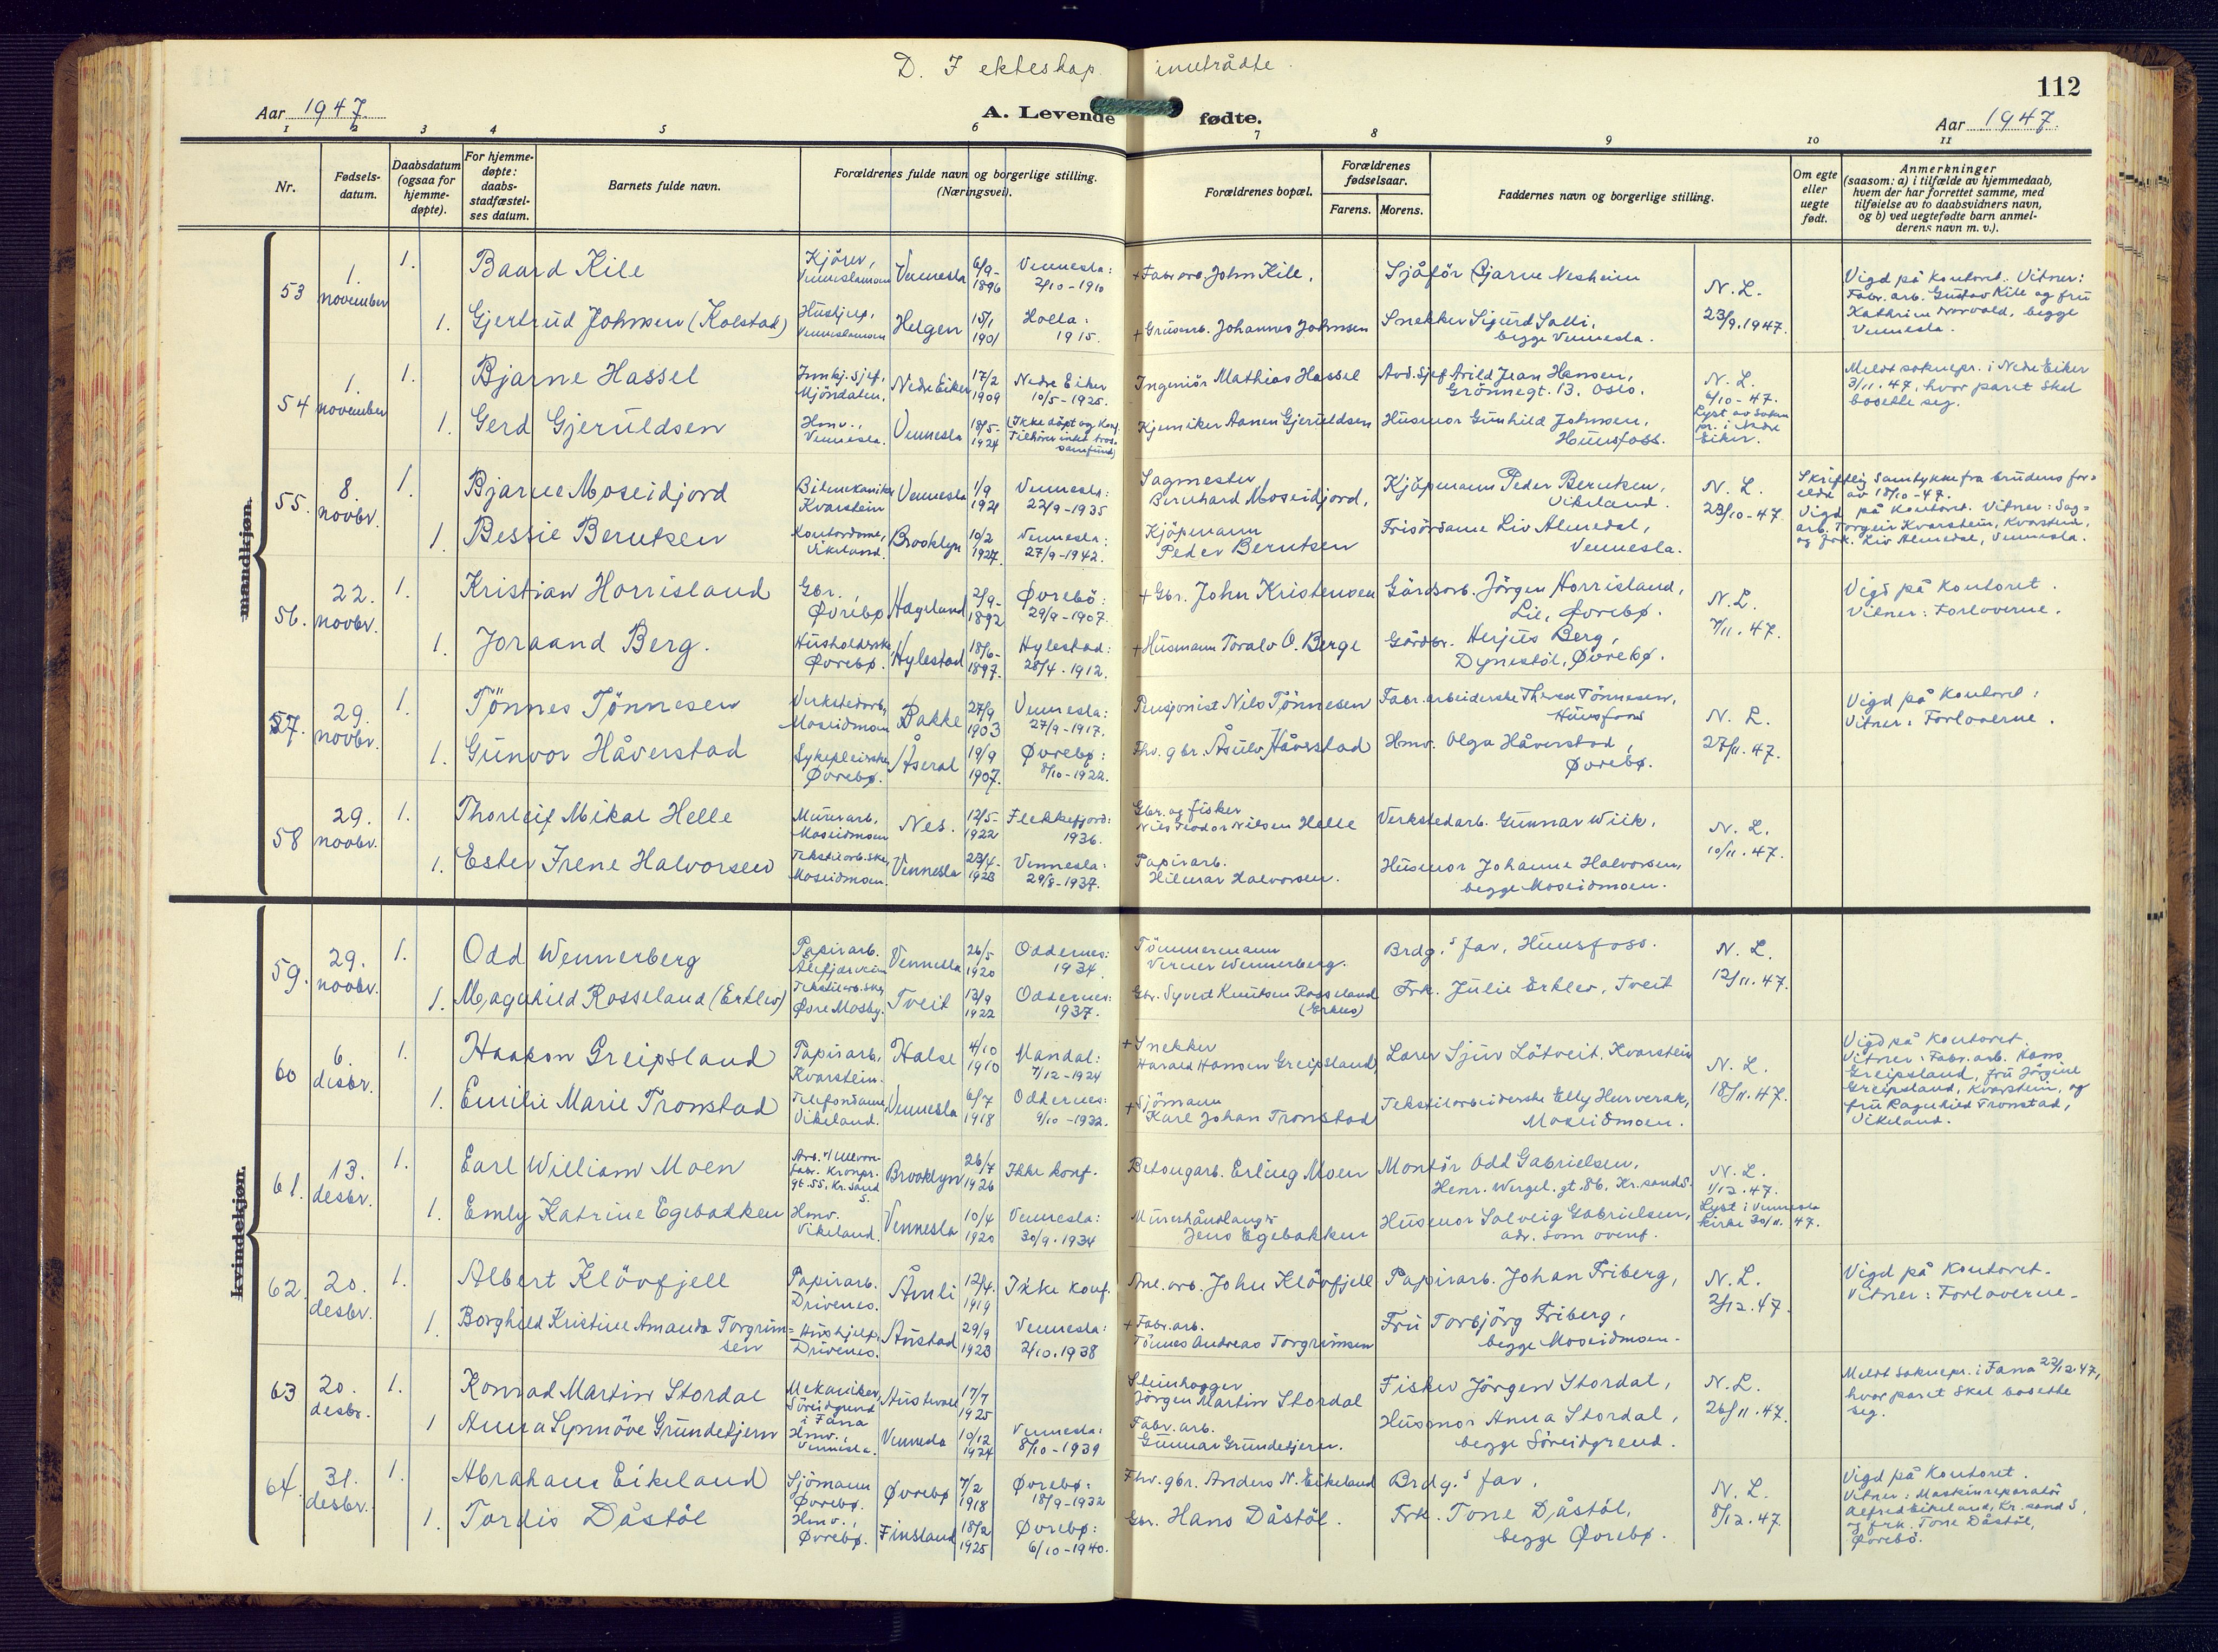 D. I ekteskap inntrådte.
112
Aar 1947.
A. Levende fødte.
Aar 1947.
1 2 3 4 5 6 7 8 9 10 11
Nr.
Fødsels-
datum.
Daabsdatum
(ogsaa for
hjemme-
døpte).
For hjemme-
døpte:
daabs-
stadfæstel-
ses datum.
Barnets fulde navn.
Forældrenes fulde navn og borgerlige stilling.
(Næringsvei).
Forældrenes bopæl.
Forældrenes
fødselsaar.
Farens. Morens.
Faddernes navn og borgerlige stilling.
Om egte
eller
uegte
født.
Anmerkninger
(saasom: a) i tilfælde av hjemmedaab,
hvem der har forrettet samme, med
tilføielse av to daabsvidners navn,
og b) ved uegtefødte barn anmel-
derens navn m. v.).
mandkjøn.
53
1.
november
1.
Baard Kile
Kjörer,
Venneslamoen
Vennesla
6/9-
1896
Vennesla:
2/10-1910
+ Fabr.arb. John Kile.
Sjåför Bjarne Nesheim
N. L.
23/9.1947.
Vigd på kontoret. Vitner:
Fabr. arb. Gustav Kile og fru
Kathrine Norvald, begge
Vennesla.
1.
Gjertrud Johnsen (Kolstad)
Hushjelp,
Venneslamoen
Helgen
15/1
1901
Holla:
1915.
+ Grusarb. Johannes Johnsen
Snekker Sigurd Salli,
begge Vennesla.
54
1.
november
1.
Bjarne Hassel
Innkj.sjef,
Mjöndalen.
Nedre Eiker
17/2
1909
Nedre Eiker
10/5-1925.
Ingeniör Mathias Hassel
Avd. sjef Arild Jean Hansen,
Grönnegt. 13. Oslo.
N. L.
6/10-47.
Lyst av sokn
pr. i Nedre
Eiker.
Meldt soknepr. i Nedre Eiker
3/11.47, hvor paret skal
bosette seg.
1.
Gerd Gjeruldsen
Hmv.,
Vennesla.
Vennesla
18/5-
1924
(Ikke döpt og konf.
Tilhörer intet tros-
samfund)
Kjemiker Aanen Gjeruldsen
Husmor Gunhild Johnsen,
Hunsfoss.
55.
8.
novbr.
1.
Bjarne Moseidjord
Bilmekaniker
Kvarstein
Vennesla
1/9
1921
Vennesla:
22/9-1935
Sagmester
Bernhard Moseidjord,
Kjöpmann Peder Berntsen,
Vikeland.
N. L.
23/10-47
Skriftlig samtykke fra brudens for=
eldre av 18/10-47.
Vigd på kontoret. Vitner: Sag=
arb. Torgeir Kvarstein, Kvarstein,
og frk. Liv Almedal, Vennesla.
1.
Bessie Berntsen
Kontordame,
Vikeland.
Brooklyn
10/2
1927.
Vennesla:
27/9-1942.
Kjöpmann
Peder Berntsen
Frisördame Liv Almedal,
Vennesla.
56.
22.
novbr.
1.
Kristian Horrisland
Gbr.,
Øvrebø
Hægeland
2/9-
1892
Øvrebö:
29/9-1907.
+ Gbr. John Kristensen
Gårdsarb. Jörgen Horrisland,
Lie, Øvrebø.
N. L.
7/11.47.
Vigd på kontoret.
Vitner: Forloverne.
1.
Joraand Berg.
Husholderske
Øvrebø.
Hylestad
18/6-
1897.
Hylestad:
28/4.1912.
+ Husmann Toralv O. Berge
Gårdbr. Herjus Berg,
Dynestöl, Øvrebø.
57.
29.
novbr.
1.
Tönnes Tönnesen
Verkstedarb,
Moseidmoen
Bakke
27/9
1903
Vennesla:
27/9-1917.
Pensjonist Nils Tönnesen
Fabr.arbeiderske Therese Tönnesen,
Hunsfoss
N. L.
27/11.47.
Vigd på kontoret:
Vitner: Forloverne.
1.
Gunvor Håverstad
Sykepleierske
Øvrebø.
Åseral
19/9
1907.
Øvrebø:
8/10-1922.
Fhv. gbr. Åsulv Håverstad
Hmv. Olga Håverstad,
Øvrebø.
58
29.
novbr.
1.
Thorleif Mikal Helle
Murerarb,
Moseidmoen
Nes.
12/5-
1922
Flekkefjord:
1936.
Gbr. og fisker
Nils Teodor Nilsen Helle
Verkstedarb. Gunnar Wiik.
N. L.
10/11.47.
1.
Ester Irene Halvorsen
Tekstilarb.ske,
Moseidmoen.
Vennesla
23/4-
1923
Vennesla:
29/8-1937.
Papirarb.
Hilmar Halvorsen.
Husmor Johanne Halvorsen,
begge Moseidmoen.
kvindekjøn.
59.
29.
novbr.
1.
Odd Wennerberg
Papirarb.
Vennesla
26/5
1920
Oddernes:
1934.
Tömmermann
Verner Wennerberg.
Brdg.s far, Hunsfoss.
N. L.
12/11.47.
1.
Magnhild Rosseland (Erklev)
Tekstilarb.ske,
Øvre Mosby.
Tveit
13/9
1922
Oddernes:
1937.
Gbr. Syvert Knutsen Rosseland
Frk. Julie Erklev, Tveit
60
6.
desbr.
1.
Haakon Greipsland
Papirarb,
Kvarstein.
Halse
4/10
1910
Mandal:
7/12-1924
+ Snekker
Harald Hansen Greipsland,
Lærer Sjur Låtveit, Kvarstein
N. L.
18/11.47.
Vigd på kontoret.
Vitner: Fabr. arb. Hans
Greipsland, fru Jörgine
Greipsland, Kvarstein, og
fru Ragnhild Tronstad,
Vikeland.
1.
Emilie Marie Tronstad
Telefondame,
Vikeland.
Vennesla
6/7
1918
Oddernes:
9/10-1932.
+ Sjömann
Karl Johan Tronstad
Tekstilarbeiderske Elly Hurverak,
Moseidmoen.
61.
13.
desbr.
1.
Earl William Moen
gt. 55, Kr.sand
S.
Brooklyn
26/7
1926
Ikke konf.
Betongarb. Erling Moen
Montör Odd Gabrielsen,
Henr. Wergel. gt. 86. Kr.sand S.
N. L.
1/12.47.
Lyst i Vennesla
kirke 30/11.47.
1.
Emly Katrine Egebakken
Hmv.
Vikeland.
Vennesla
10/4
1920
Vennesla:
30/9.1934
Murerhåndlanger
Jens Egebakken
Husmor Solveig Gabrielsen,
adr. som ovenf.
62.
20.
desbr.
1.
Albert Klövfjell
Papirarb.
Drivenes.
Åmli
12/4
1919
Ikke konf.
Anl. arb. John Klövfjell
Papirarb. Johan Friberg,
N. L.
2/12.47.
Vigd på kontoret.
Vitner: Forloverne.
1.
Borghild Kristine Amanda Torgrim=
sen
Hushjelp,
Drivenes.
Austad
29/9
1923
Vennesla:
2/10.1938
+ Fabr.arb.
Tönnes Andreas Torgrimsen
Fru Torbjörg Friberg,
begge Moseidmoen.
63
20.
desbr.
1.
Konrad Martin Stordal
Mekaniker,
Söreidgrend
i Fana
Austevoll
17/7
1925
Steinhogger
Jörgen Martin Stordal
Fisker Jörgen Stordal,
N. L.
26/11.47.
Meldt soknepr. i Fana 22/12.47,
hvor paret skal bosette
seg.
1
Anna Synnöve Grundetjern
Hmv.,
Vennesla.
Vennesla
10/12
1924
Vennesla:
8/10-1939
Fabr. arb.
Gunnar Grundetjern.
Husmor Anna Stordal,
begge Söreidgrend.
64.
31.
desbr.
1.
Abraham Eikeland
Sjömann
Øvrebø.
Øvrebø
7/2
1918
Øvrebø:
18/9-1932
Fhv. gbr. Anders N. Eikeland
Brdg.s far,
N. L.
8/12.47.
Vigd på kontoret.
Vitner: Maskinreparatör
Alfred Eikeland, Kr. sand S,
og frk. Tone Dåstöl,
Øvrebö.
1.
Tordis Dåstöl
Hmv.,
Øvrebø.
Finsland
18/2
1925
Øvrebø:
6/10-1940.
Gbr. Hans Dåstöl.
Frk. Tone Dåstöl,
begge Øvrebø.